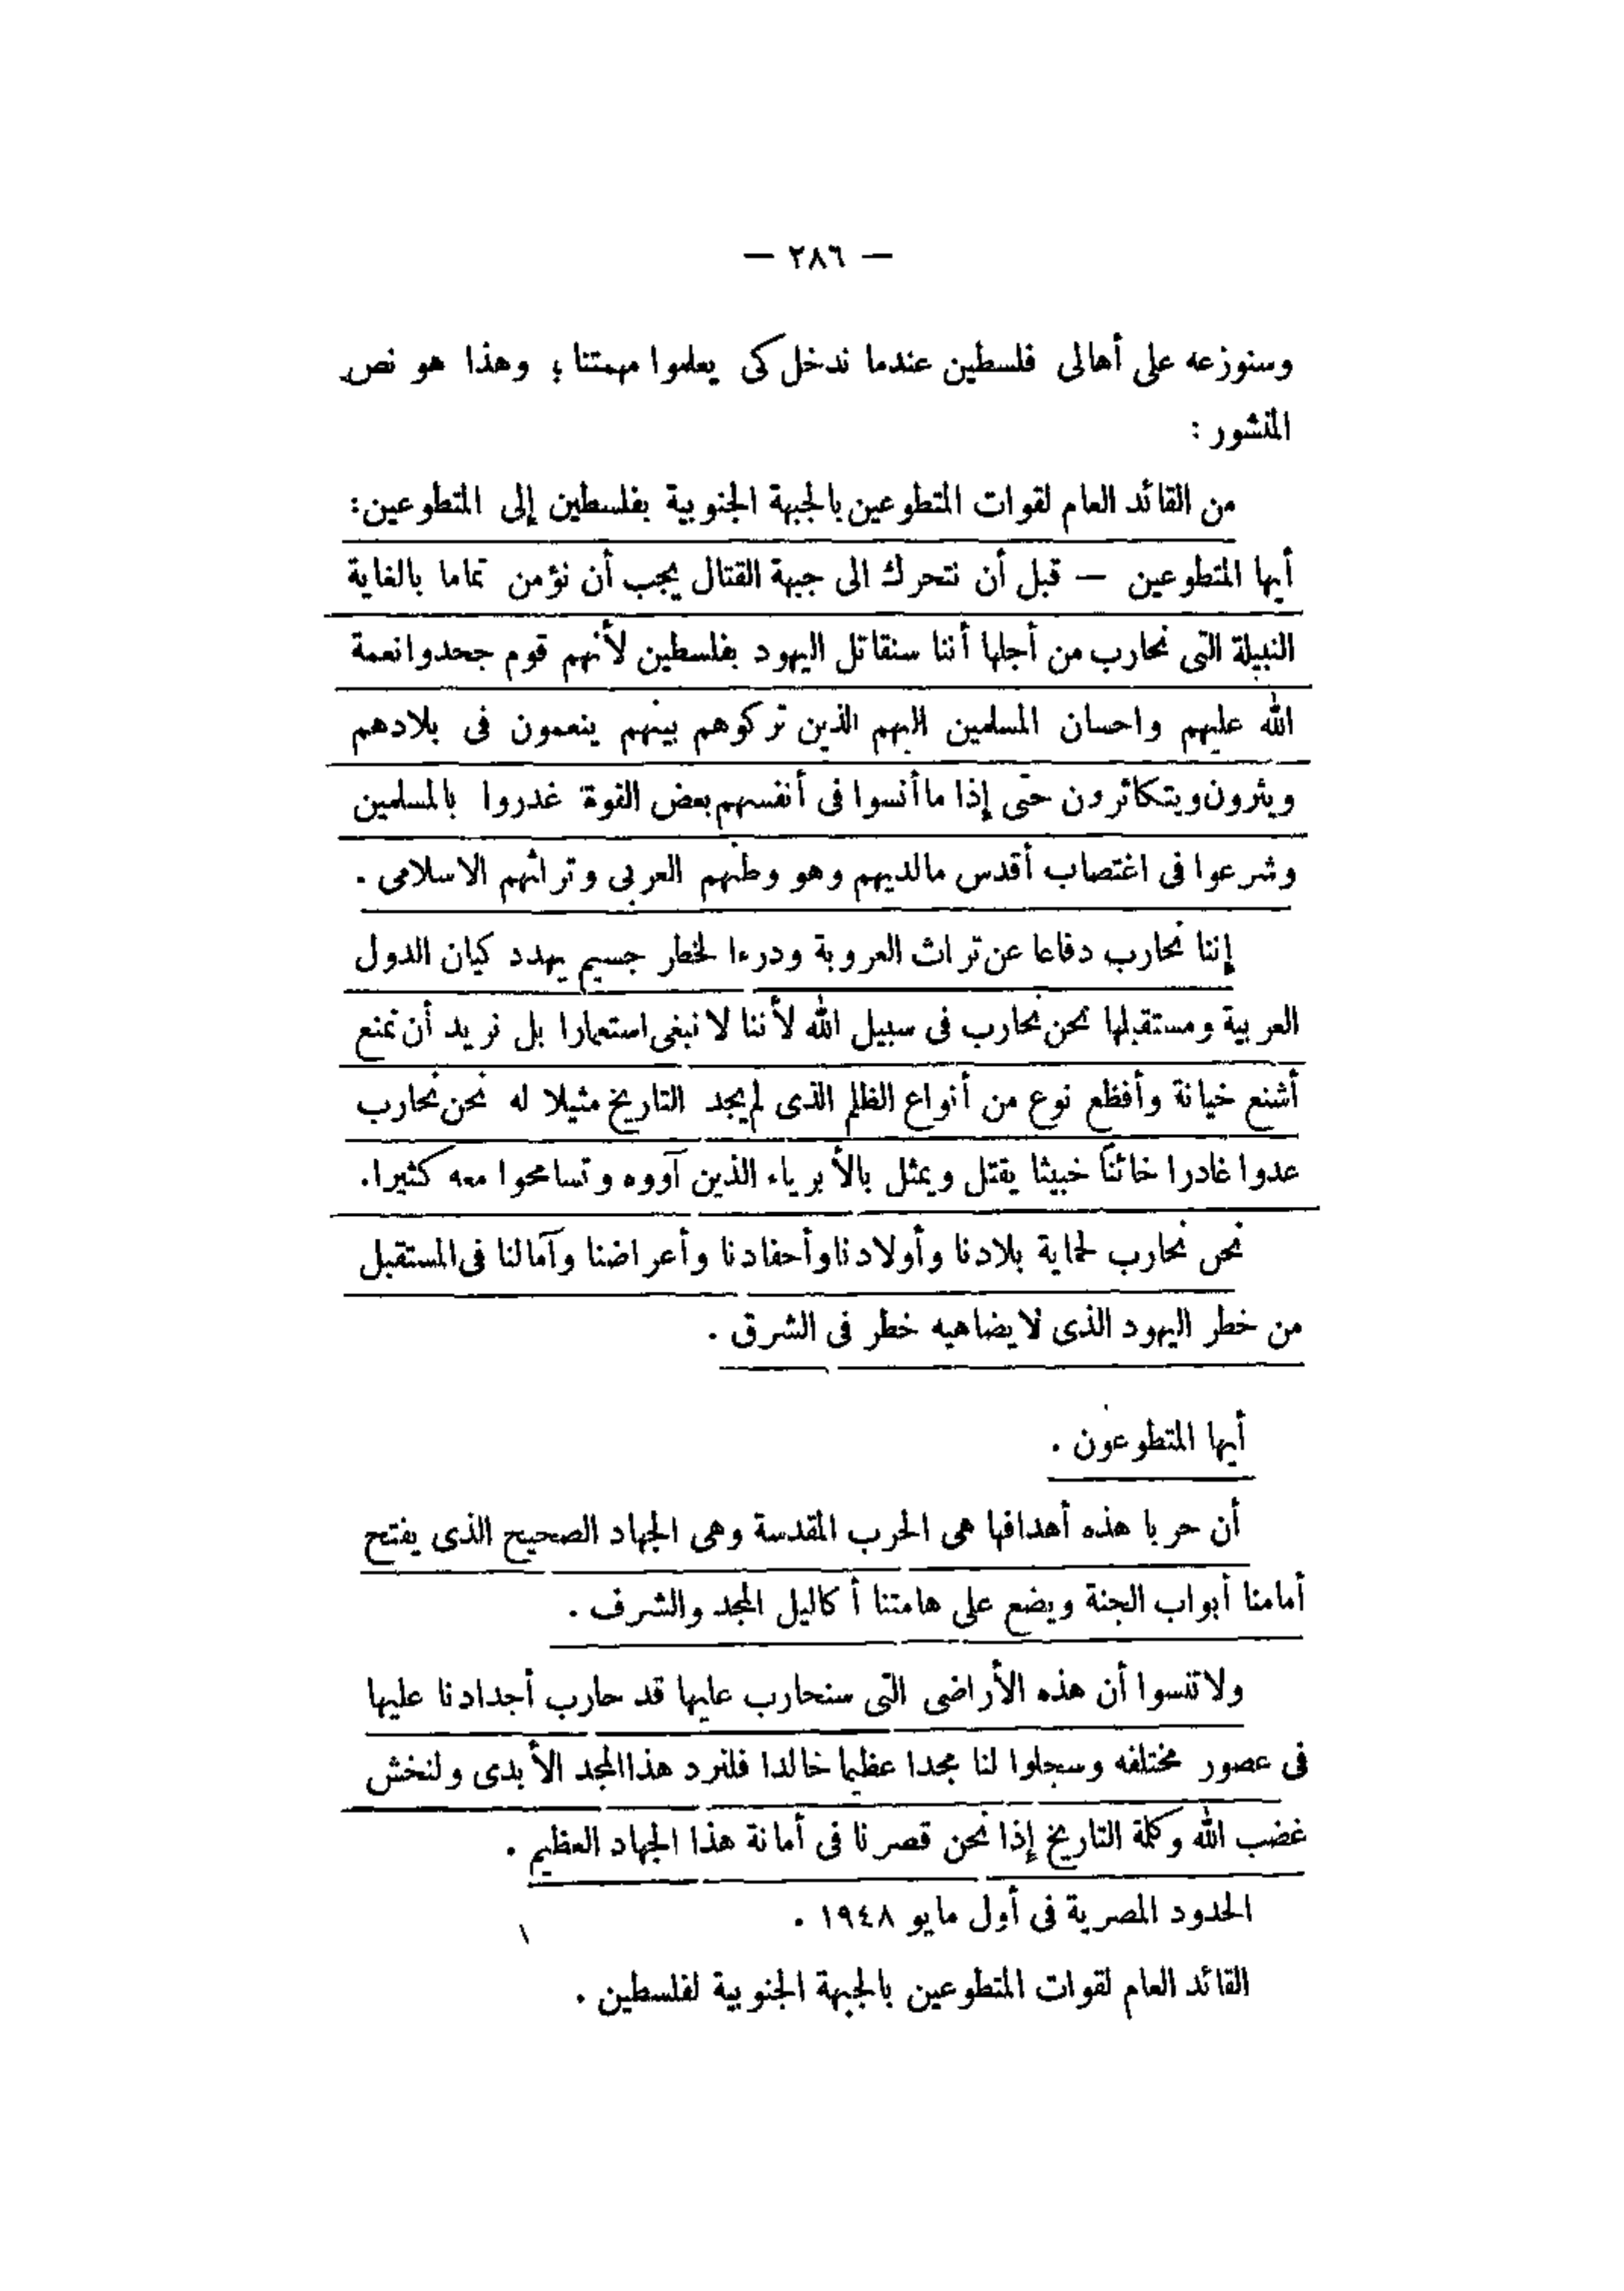 — ٢٨٦ —
وسنوزعه على أهالى فلسطين عندما ندخل كى يعلموا مهمتنا ؛ وهذا هو نص
المنشور :
من القائد العام لقوات المتطوعين بالجبهة الجنوبية بفلسطين إلى المتطوعين:
أيها المتطوعين — قبل أن نتحرك الى جبهة القتال يجب أن نؤمن تماما بالغاية
النبيلة التى نحارب من أجلها أننا سنقاتل اليهود بفلسطين لأنهم قوم جحدوا نعمة
الله عليهم واحسان المسلمين اليهم الذين تركوهم بينهم ينعمون فى بلادهم
ويثرون ويتكاثرون حتى إذا ما أنسوا فى أنفسهم بعض القوة غدروا بالمسلمين
وشرعوا فى اغتصاب أقدس مالديهم وهو وطنهم العربى وتراثهم الاسلامى .
إننا نحارب دفاعا عن تراث العروبة ودرءا لخطر جسيم يهدد كيان الدول
العربية ومستقبلها نحن نحارب فى سبيل الله لأننا لا نبغى استعمارا بل نريد أن نمنع
أشنع خيانة وأفظع نوع من أنواع الظلم الذى لم يجد التاريخ مثيلا له نحن نحارب
عدوا غادرا خائنا خبيثا يقتل ويمثل بالأبرياء الذين آووه وتسامحوا معه كثيرا.
نحن نحارب لحماية بلادنا وأولادنا وأحفادنا وأعراضنا وآمالنا فى المستقبل
من خطر اليهود الذى لا يضاهيه خطر فى الشرق .
أيها المتطوعون .
أن حربا هذه أهدافها هى الحرب المقدسة وهى الجهاد الصحيح الذى يفتح
أمامنا أبواب الجنة ويضع على هامتنا أكاليل المجد والشرف .
ولا تنسوا أن هذه الأراضى التى سنحارب عليها قد حارب أجدادنا عليها
فى عصور مختلفه وسجلوا لنا مجدا عظيما خالدا فلنرد هذا المجد الأبدى ولنخش
غضب الله وكلمة التاريخ إذا نحن قصرنا فى أمانة هذا الجهاد العظيم .
الحدود المصرية فى أول مايو ١٩٤٨ .
القائد العام لقوات المتطوعين بالجبهة الجنوبية لفلسطين .